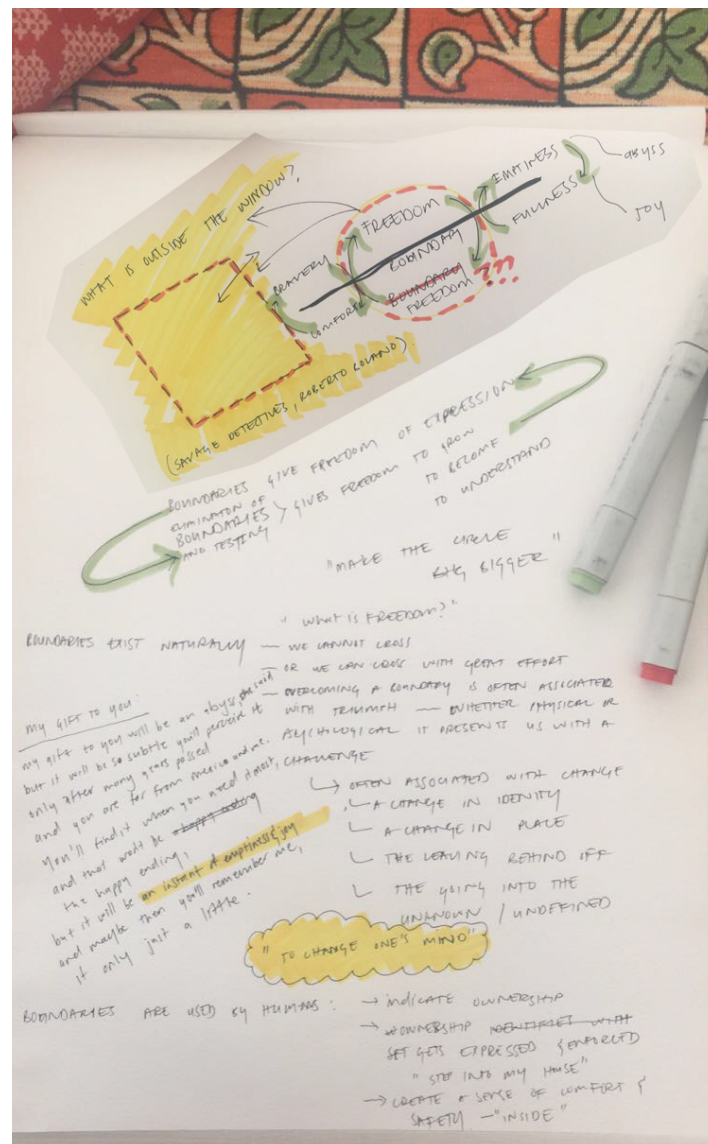 WHAT IS OUTSIDE THE WINDOW?
(SAVAGE DETECTIVES, ROBERTO BOLANO).
BRAVERY
COMFORT
FREEDOM
BOUNDARY
BOUNDARY
FREEDOM
???
EMPTINESS
FULLNESS
abyss
JOY
BOUNDARIES GIVE FREEDOM OF EXPRESSION
ELIMINATON OF
BOUNDARIES > GIVES FREEDOM TO GROW
AND TESTING
TO BECOME
TO UNDERSTAND
"MAKE THE CIRCLE
BIGGER"
"What is FREEDOM?"
BOUNDARIES EXIST NATURALLY — WE CANNOT CROSS
— OR WE CAN CROSS WITH GREAT EFFORT
— OVERCOMING A BOUNDARY IS OFTEN ASSOCIATED
WITH TRIUMPH — WHETHER PHYSICAL OR
PSYCHOLOGICAL IT PRESENTS US WITH A
CHALLENGE
OFTEN ASSOCIATED WITH CHANGE
A CHANGE IN IDENTITY
A CHANGE IN PLACE
THE LEAVING BEHIND OFF
THE GOING INTO THE
UNKNOWN / UNDEFINED
MY GIFT TO YOU:
my gift to you will be an abyss, she said
but it will be so subtle you'll perceive it
only after many years passed
and you are far from mexico and me.
You'll find it when you need it most,
and that won't be a happy ending
the happy ending,
but it will be an instant of emptiness & joy
and maybe then you'll remember me,
if only just a little.
"TO CHANGE ONE'S MIND"
BOUNDARIES ARE USED BY HUMANS: → indicate OWNERSHIP
→ OWNERSHIP IDENTIFIES WITH
SET GETS EXPRESSED & ENFORCED
"STEP INTO MY HOUSE"
→ CREATE A SENSE OF COMFORT &
SAFETY – "INSIDE"